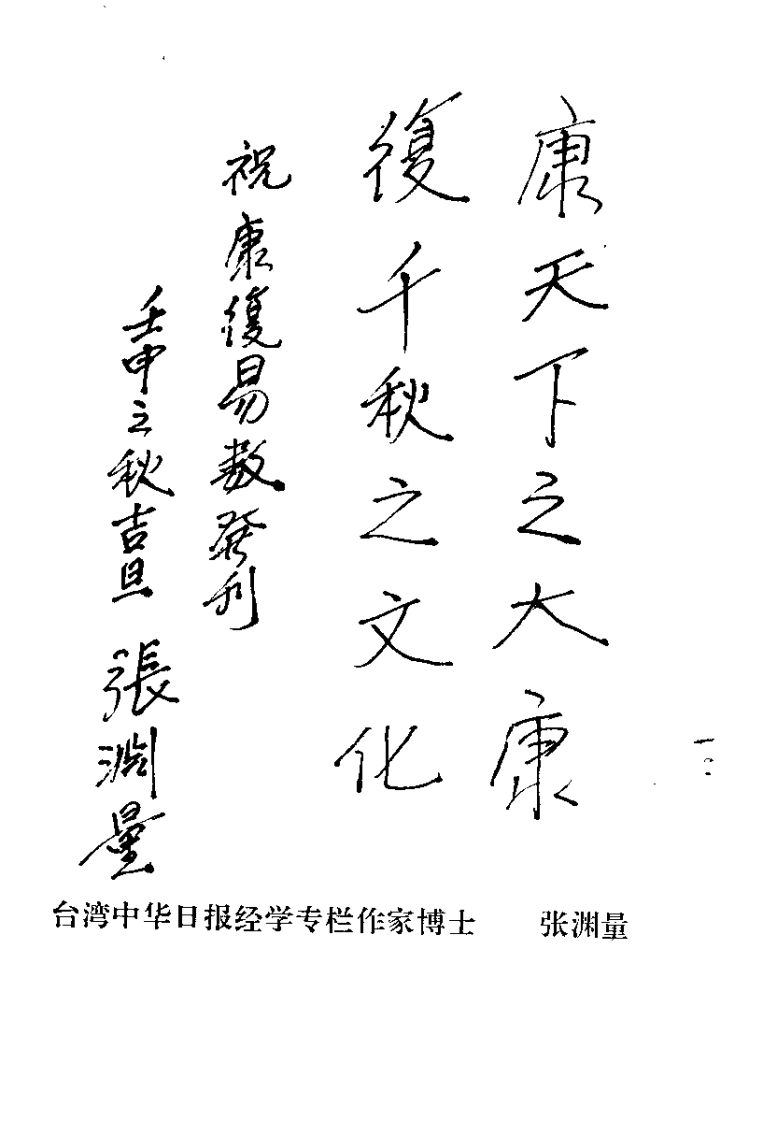 康天下之大康
復千秋之文化
祝康復易数發刊
壬申之秋吉旦 張淵量
台湾中华日报经学专栏作家博士 张渊量